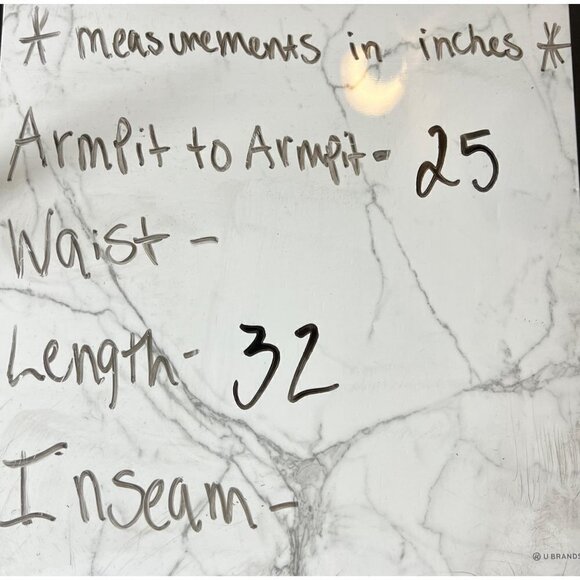 * measurements in inches *
Armpit to Armpit - 25
Waist -
Length - 32
Inseam -
U BRANDS